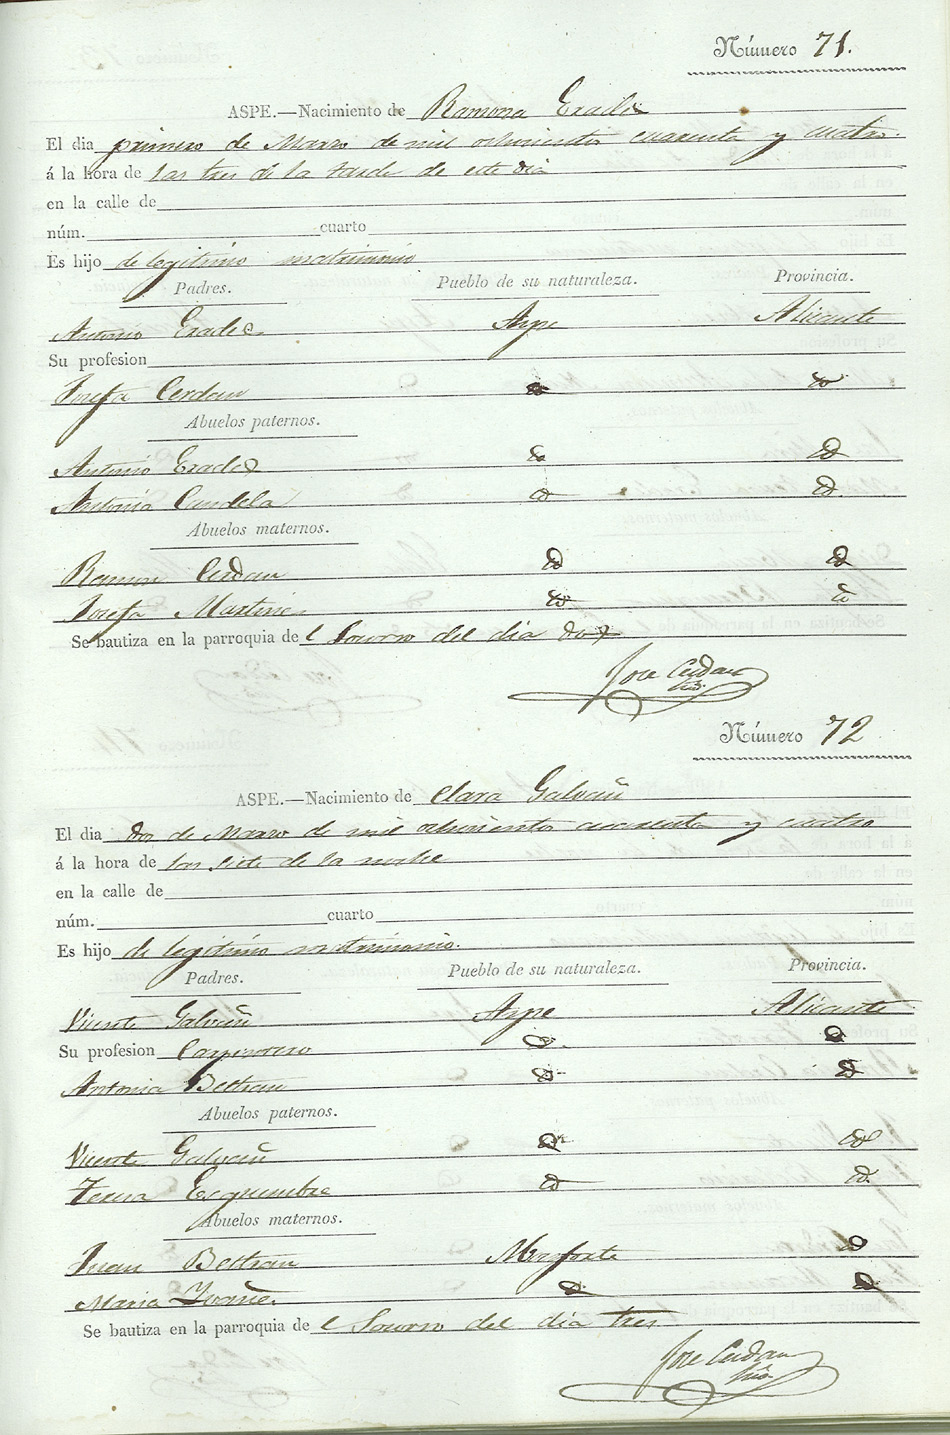 Número 71.
ASPE.—Nacimiento de Ramona Erades
El dia primero de Marzo de mil ochocientos cuarenta y cuatro.
á la hora de las tres de la tarde de este dia
en la calle de
núm. cuarto
Es hijo de legitimo matrimonio
Padres. Pueblo de su naturaleza. Provincia.
Antonio Erades Aspe Alicante
Su profesion
Josefa Cerdan
Abuelos paternos.
Antonio Erades
Antonia Candela
Abuelos maternos.
Ramon Cerdan
Josefa Martine
Se bautiza en la parroquia del Socorro del dia dos
Jose Cerdan
Número 72
ASPE.—Nacimiento de Clara Galvañ
El dia dos de Marzo de mil ochocientos cuarenta y cuatro
á la hora de las siete de la noche
en la calle de
núm. cuarto
Es hijo de legitimo matrimonio.
Padres. Pueblo de su naturaleza. Provincia.
Vicente Galvañ Aspe Alicante
Su profesion
Antonia Beltran
Abuelos paternos.
Vicente Galvañ
Teresa Esquembre
Abuelos maternos.
Juan Beltran Monforte
Maria
Se bautiza en la parroquia del Socorro del dia tres
Jose Cerdan